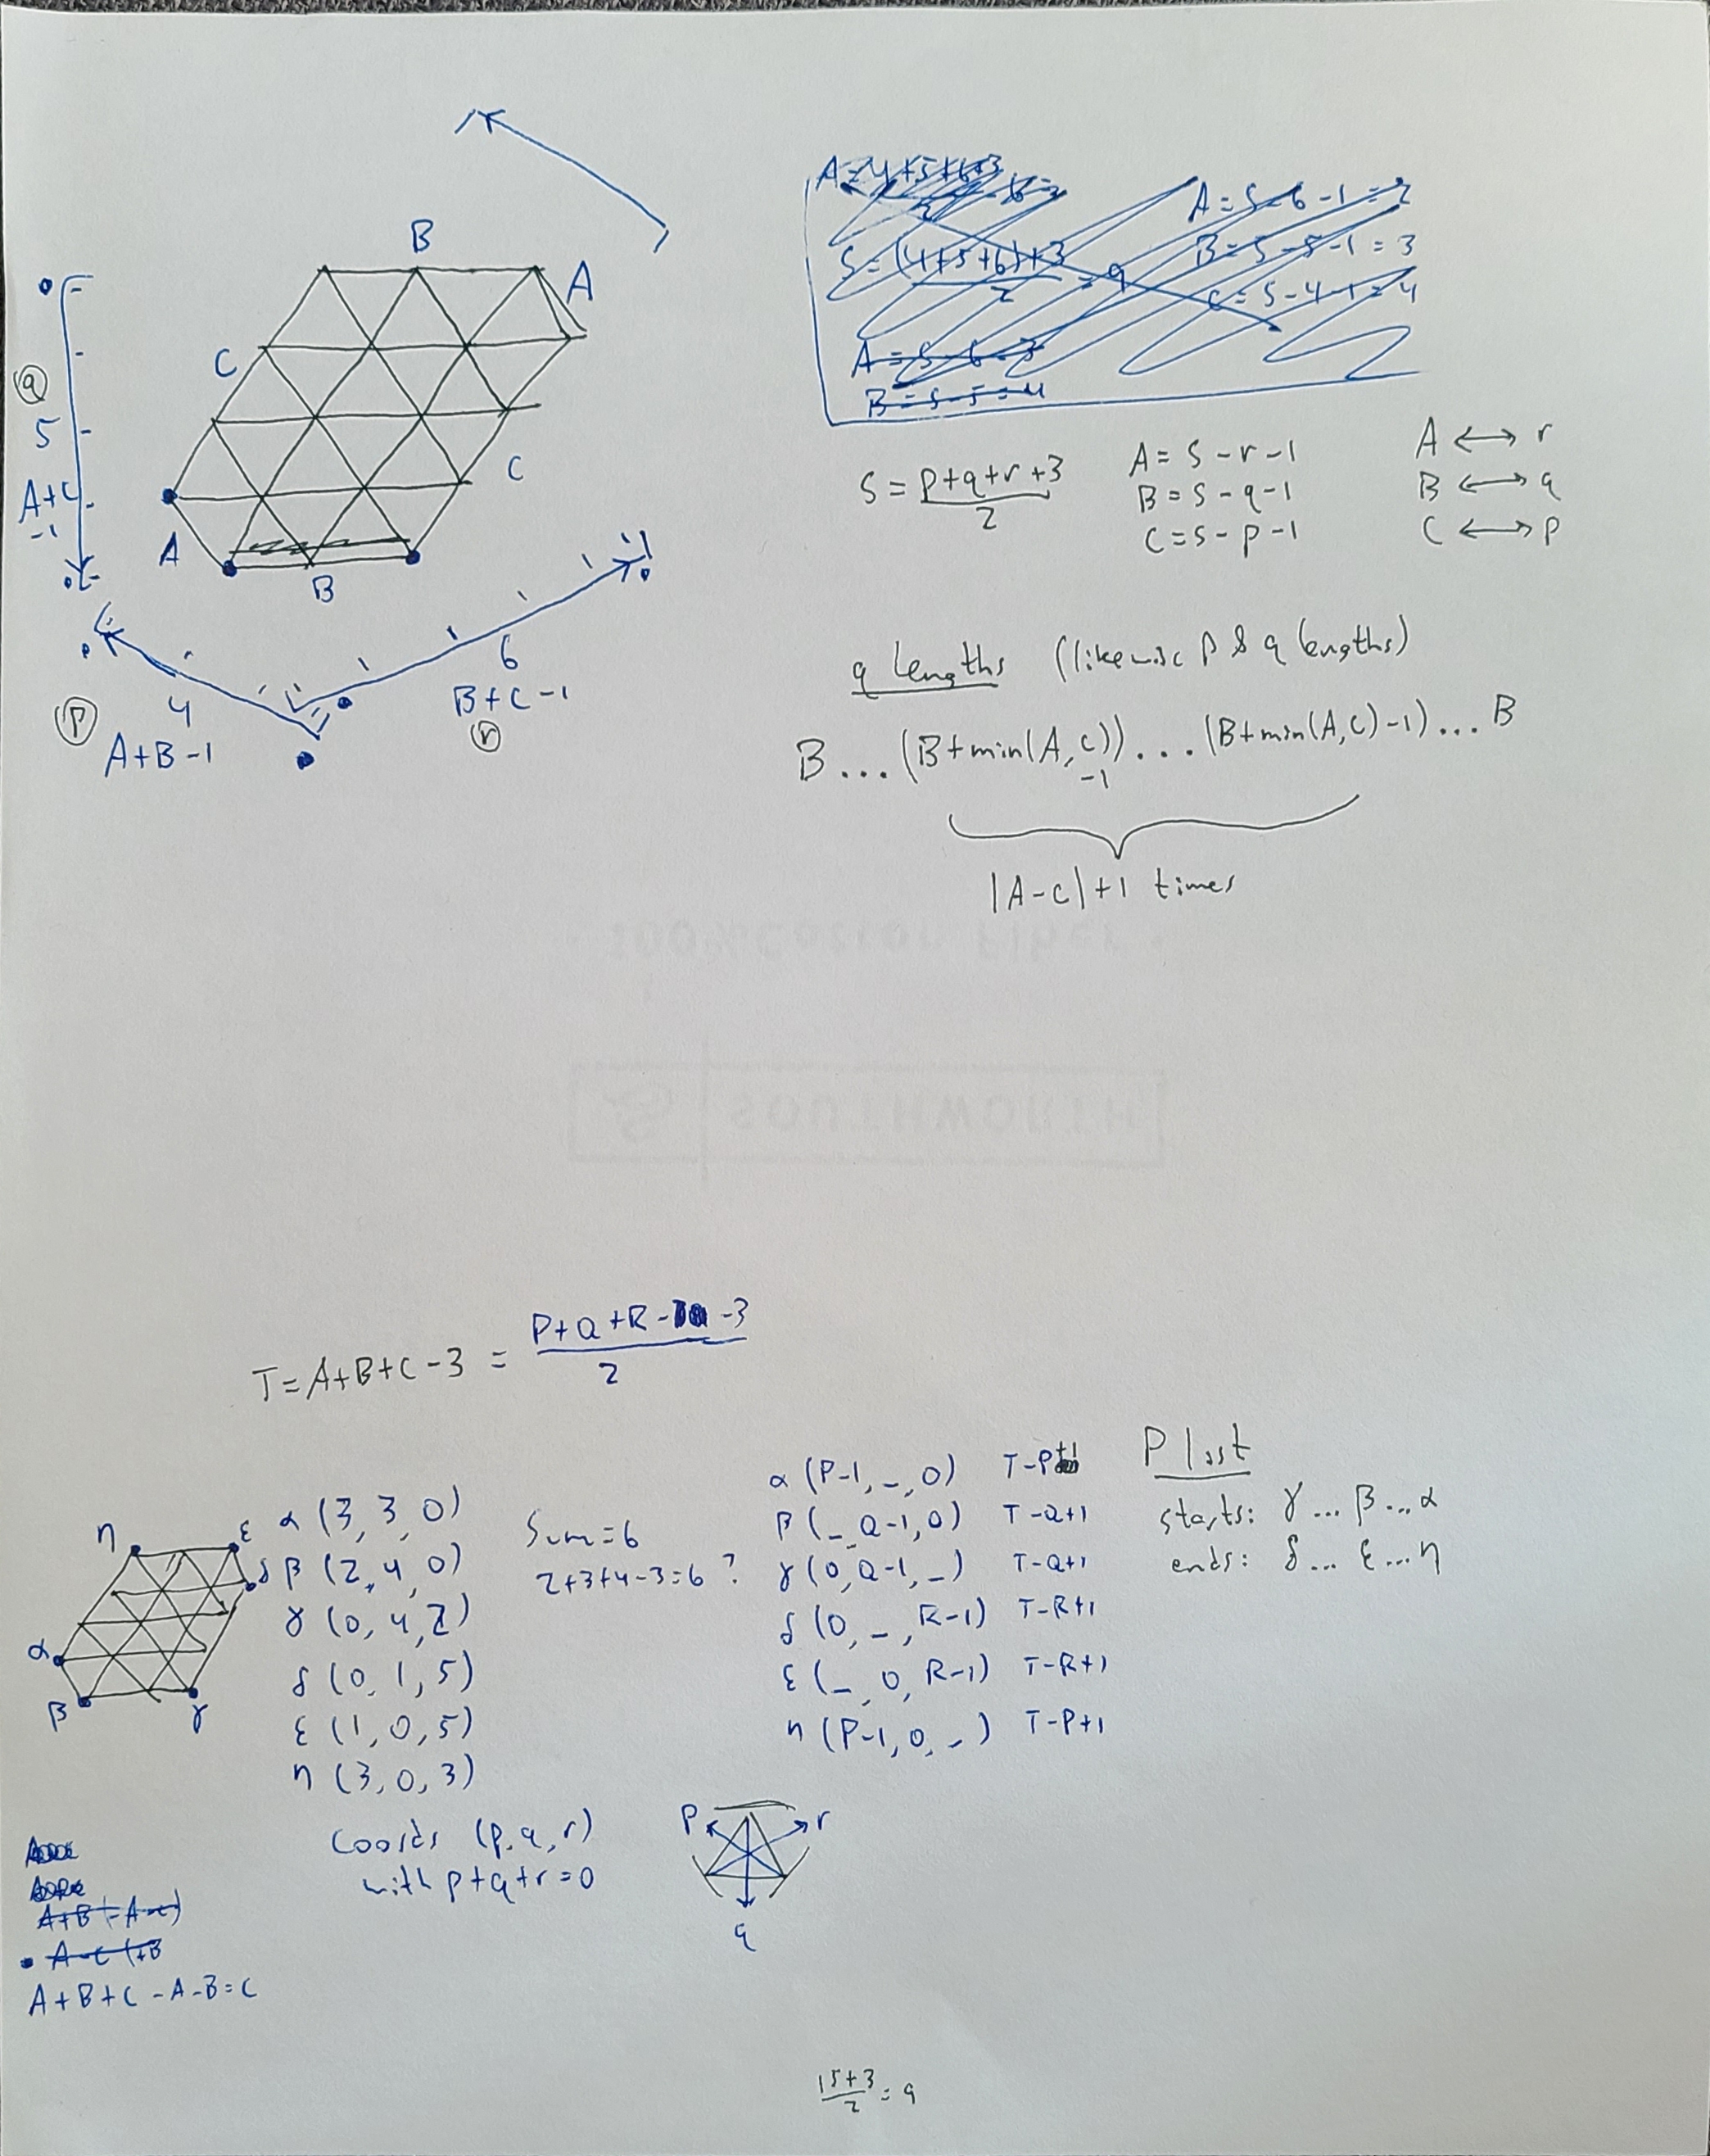 B
A
C
q
5
A+C
-1
A
B
C
p
4
A+B-1
6
B+C-1
r
A=4+5+6+3
S=(4+5+6)+3
2
=9
A=S-6-3
B=S-5=4
A=S-6-1=2
B=S-5-1=3
C=S-4-1=4
S=p+q+r+3
2
A=S-r-1
B=S-q-1
C=S-p-1
A↔r
B↔q
C↔p
q lengths (likewise p & q lengths)
B...(B+min(A,C))...(B+min(A,C)-1)...B
-1
|A-C|+1 times
100% Cotton Fiber
SOUTHWORTH
T=A+B+C-3 = P+Q+R-3
2
η
ε
δ
α
β
γ
α (3,3,0)
β (2,4,0)
γ (0,4,2)
δ (0,1,5)
ε (1,0,5)
η (3,0,3)
Sum=6
2+3+4-3=6?
α (P-1,_,0) T-P+1
β (_,Q-1,0) T-Q+1
γ (0,Q-1,_) T-Q+1
δ (0,_,R-1) T-R+1
ε (_,0,R-1) T-R+1
η (P-1,0,_) T-P+1
P list
starts: γ...β...α
ends: δ...ε...η
Coords (p,q,r)
with p+q+r=0
p
r
q
A+B+C-A-B=C
15+3
2
=9